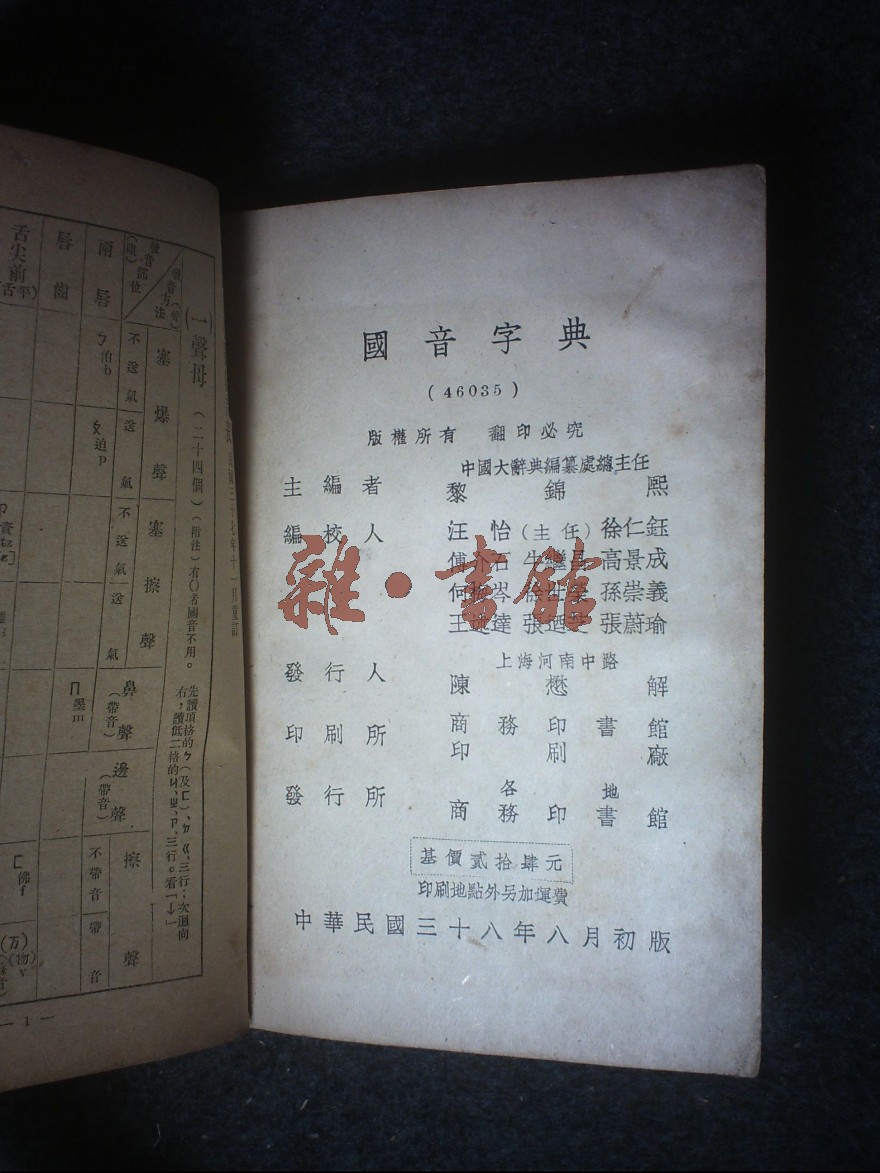 國音字典
(46035)
版權所有 翻印必究
中國大辭典編纂處總主任
主編者 黎錦熙
編校人 汪怡(主任)徐仁鈺
傅介石 牛繼昌 高景成
何 岑 徐 孫崇義
王 達 張 張蔚瑜
上海河南中路
發行人 陳懋解
印刷所 商務印書館
印刷廠
發行所 各地
商務印書館
基價貳拾肆元
印刷地點外另加運費
中華民國三十八年八月初版
雜·書館
(一)聲母 (二十四個)(附注)有()者國音不用。
先讀頂格的ㄅ(及ㄈ)、ㄉ、ㄍ、三行;次迴向
右,讀低二格的ㄐ、ㄓ、ㄗ、三行。看「↓」
發音方法
發音部位
塞爆聲
塞擦聲
鼻聲
(帶音)
邊聲
(帶音)
擦聲
不送氣
送氣
不送氣
送氣
不帶音
帶音
兩唇
ㄅ伯b
ㄆ迫p
ㄇ墨m
唇齒
ㄈ佛f
(万)(物)v
舌尖前
(舌平)
— 1 —